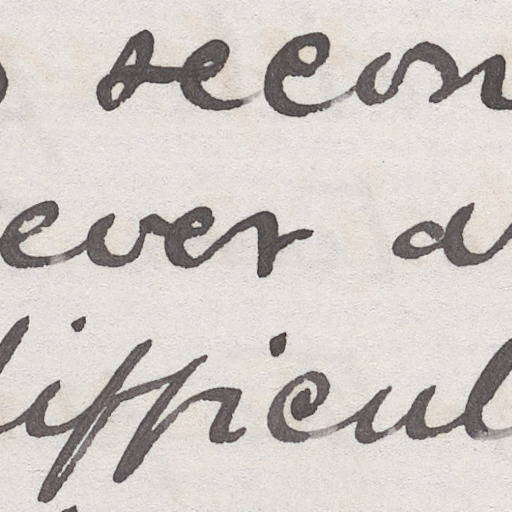 secon
ever a
difficul